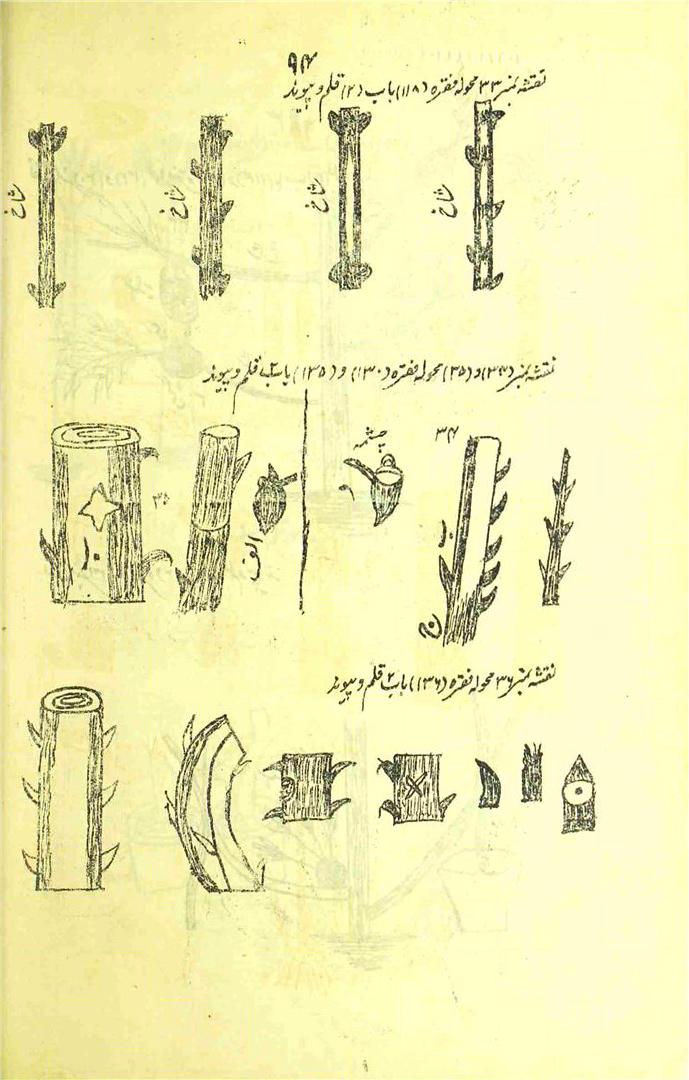 ۹۴
نقشہ نمبر ۳۳ محولہ فقرہ (۱۱۸) باب (۲) قلم و پیوند
شاخ
شاخ
شاخ
شاخ
نقشہ نمبر (۳۴) و (۳۵) محولہ فقرہ (۱۳۰) و (۱۳۵) باب ۲ قلم و پیوند
۳۴
چشمہ
۳۵
الف
نقشہ نمبر ۳۶ محولہ فقرہ (۱۳۶) باب ۲ قلم و پیوند